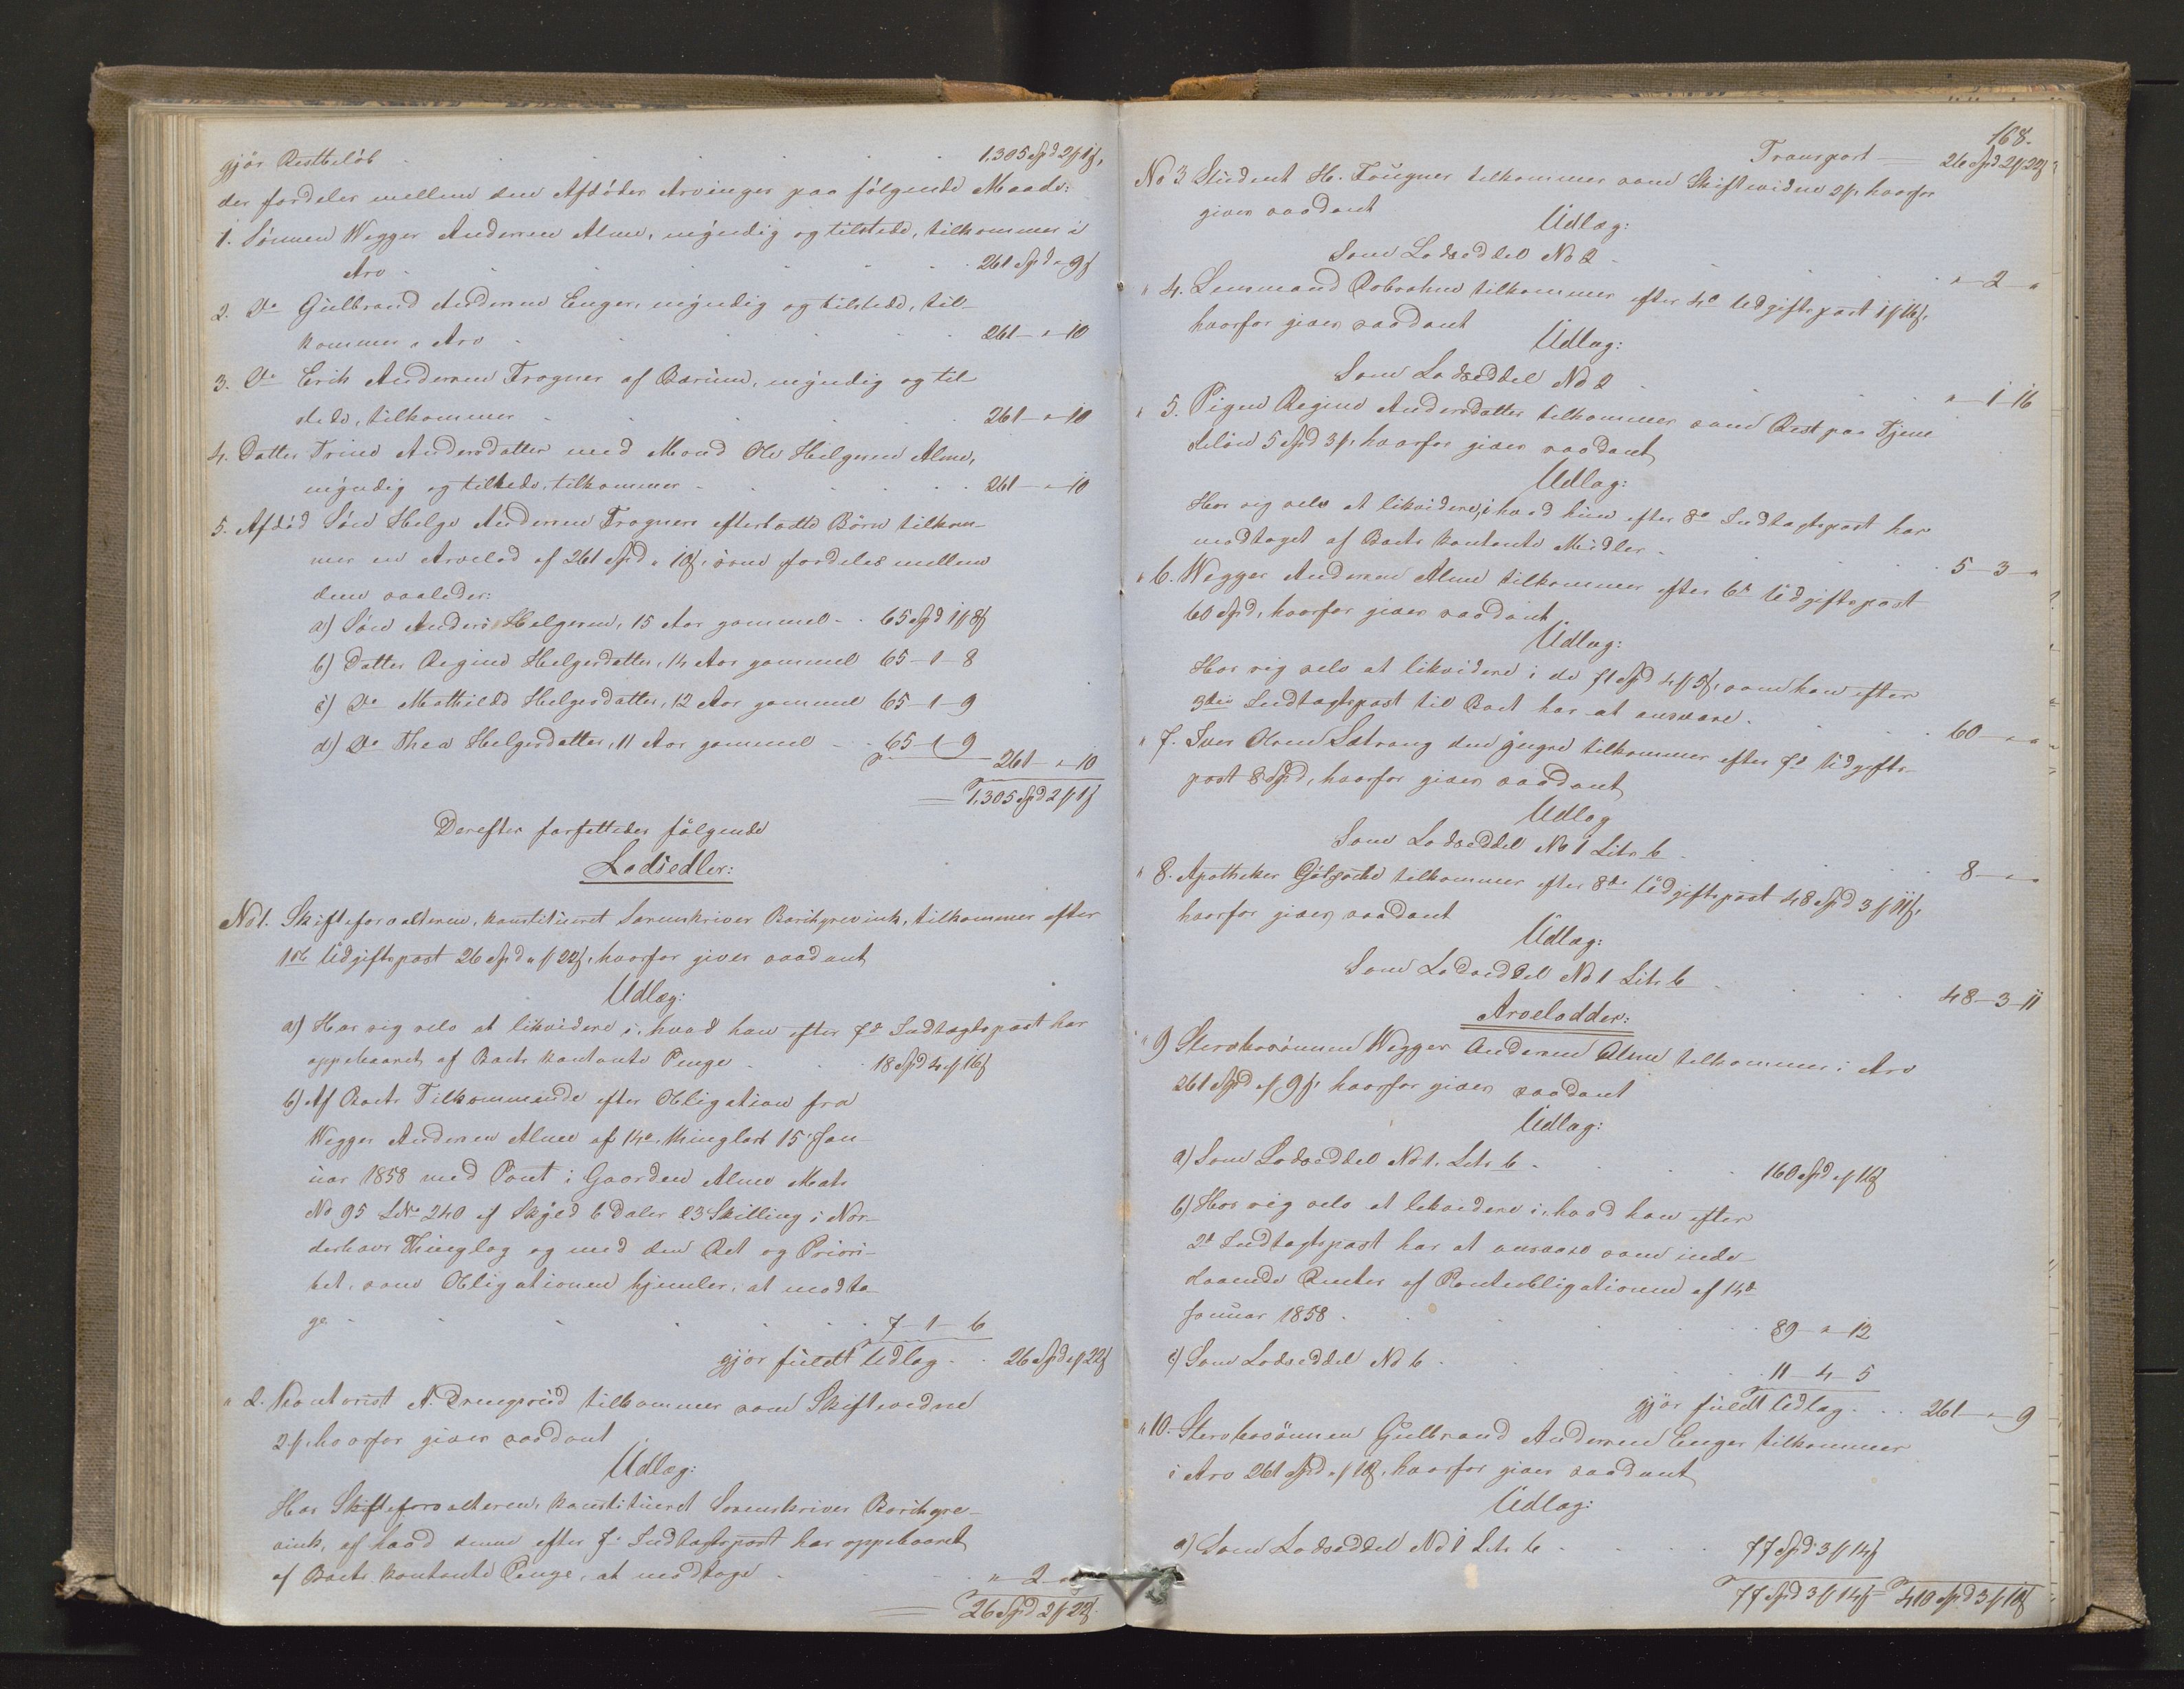 gjör Restbelöb 1.305 Spd 2 ß 1 ß,
der fordeles mellem den Afdödes Arvinger paa fölgende Maade:
1. Sönnen Wegger Andersen Alme, myndig og tilstede, tilkommer i
Arv 261 Spd " 9 ß
2. Do Gulbrand Andersen Enger, myndig og tilstede, til-
kommer i Arv 261 - " - 10
3. Do Erik Andersen Frogner af Bærum, myndig og til
stede, tilkommer 261 - " - 10
4. Datter Trine Andersdatter med Mand Ole Helgesen Alme,
myndig og tilstede, tilkommer 261 - " - 10
5. Afdöd Sön Helge Andersen Frogners efterladte Börn tilkom-
mer en Arvelod af 261 Spd " 10 ß, som fordeles mellem
dem saaledes:
a) Sön Anders Helgesen, 15 Aar gammel 65 Spd 1 ß 8 ß
b) Datter Regine Helgesdatter, 14 Aar gammel 65 - 1 - 8
c) Do Mathilde Helgesdatter, 12 Aar gammel 65 - 1 - 9
d) Do Thea Helgesdatter, 11 Aar gammel 65 - 1 - 9
261 - " - 10
1.305 Spd 2 ß 1 ß
Derefter forfattedes fölgende
Lodsedler:
No 1. Skifteforvalteren, konstitueret Sorenskriver Borchgrevink, tilkommer efter
1ste Udgiftspost 26 Spd " ß 22 ß, hvorfor gives saadant
Udlæg:
a) Hos sig selv at likvidere i, hvad han efter 7de Indtægtspost har
oppebaaret af Boets kontante Penge 18 Spd 4 ß 16 ß
b) Af Boets Tilkommende efter Obligation fra
Wegger Andersen Alme af 14de, thinglæst 15 Jan-
uar 1858 med Pant i Gaarden Alme Matr
No 95 LNo 240 af Skyld 6 Daler 23 Skilling i Nor-
derhovs Thinglag og med den Ret og Priori-
tet, som Obligationen hjemler, at modta
ge 7 - 1 - 6
gjör fuldt Udlæg 26 Spd " ß 22 ß
" 2. Kontorist A. Drengsrud tilkommer som Skiftevidne
2 ß, hvorfor gives saadant
Udlæg:
Hos Skifteforvalteren, konstitueret Sorenskriver Borchgre-
vink, af hvad denne efter 7de Indtægtspost har oppebaaret
af Boets kontante Penge, at modtage " - 2 - "
26 Spd 2 ß 22 ß
168.
Transport 26 Spd 2 ß 22 ß
No 3. Student H. Fougner tilkommer som Skiftevidne 2 ß, hvorfor
gives saadant
Udlæg:
Som Lodseddel No 2 " - 2 - "
" 4. Lensmand tilkommer efter 4de Udgiftspost 1 ß 16 ß,
hvorfor gives saadant
Udlæg:
Som Lodseddel No 2 " - 1 - 16
" 5. Pigen Regine Andersdatter tilkommer som Rest paa Tjene
stelön 5 Spd 3 ß, hvorfor gives saadant
Udlæg:
Hos sig selv at likvidere, i hvad hun efter 8de Indtægtspost har
modtaget af Boets kontante Midler 5 - 3 - "
" 6. Wegger Andersen Alme tilkommer efter 6te Udgiftspost
60 Spd, hvorfor gives saadant
Udlæg:
Hos sig selv at likvidere i de 71 Spd 4 ß 5 ß, som han efter
3die Indtægtspost til Boet har at ansvare 60 - " - "
" 7. Iver Olsen Sætrang den yngre tilkommer efter 7de Udgifts-
post 8 Spd, hvorfor gives saadant
Udlæg
Som Lodseddel No 1 Litr. b 8 - " - "
" 8. Apotheker tilkommer efter 8de Udgiftspost 48 Spd 3 ß 11 ß,
hvorfor gives saadant
Udlæg:
Som Lodseddel No 1 Litr b 48 - 3 - 11
Arvelodder:
" 9 Stervbosönnen Wegger Andersen Alme tilkommer i Arv
261 Spd " ß 9 ß, hvorfor gives saadant
Udlæg:
a) Som Lodseddel No 1. Litr. b 160 Spd " ß 16 ß
b) Hos sig selv at likvidere i, hvad han efter
2de Indtægtspost har at ansvare som inde-
staaende Renter af Panteobligationen af 14de
Januar 1858 89 - " - 12
c) Som Lodseddel No 6 11 - 4 - 5
gjör fuldt Udlæg 261 - " - 9
" 10. Stervbosönnen Gulbrand Andersen Enger tilkommer
i Arv 261 Spd " ß 10 ß, hvorfor gives saadant
Udlæg:
a) Som Lodseddel No 1 Litr. b 77 Spd 3 ß 14 ß
77 Spd 3 ß 14 ß = 410 Spd 3 ß 10 ß